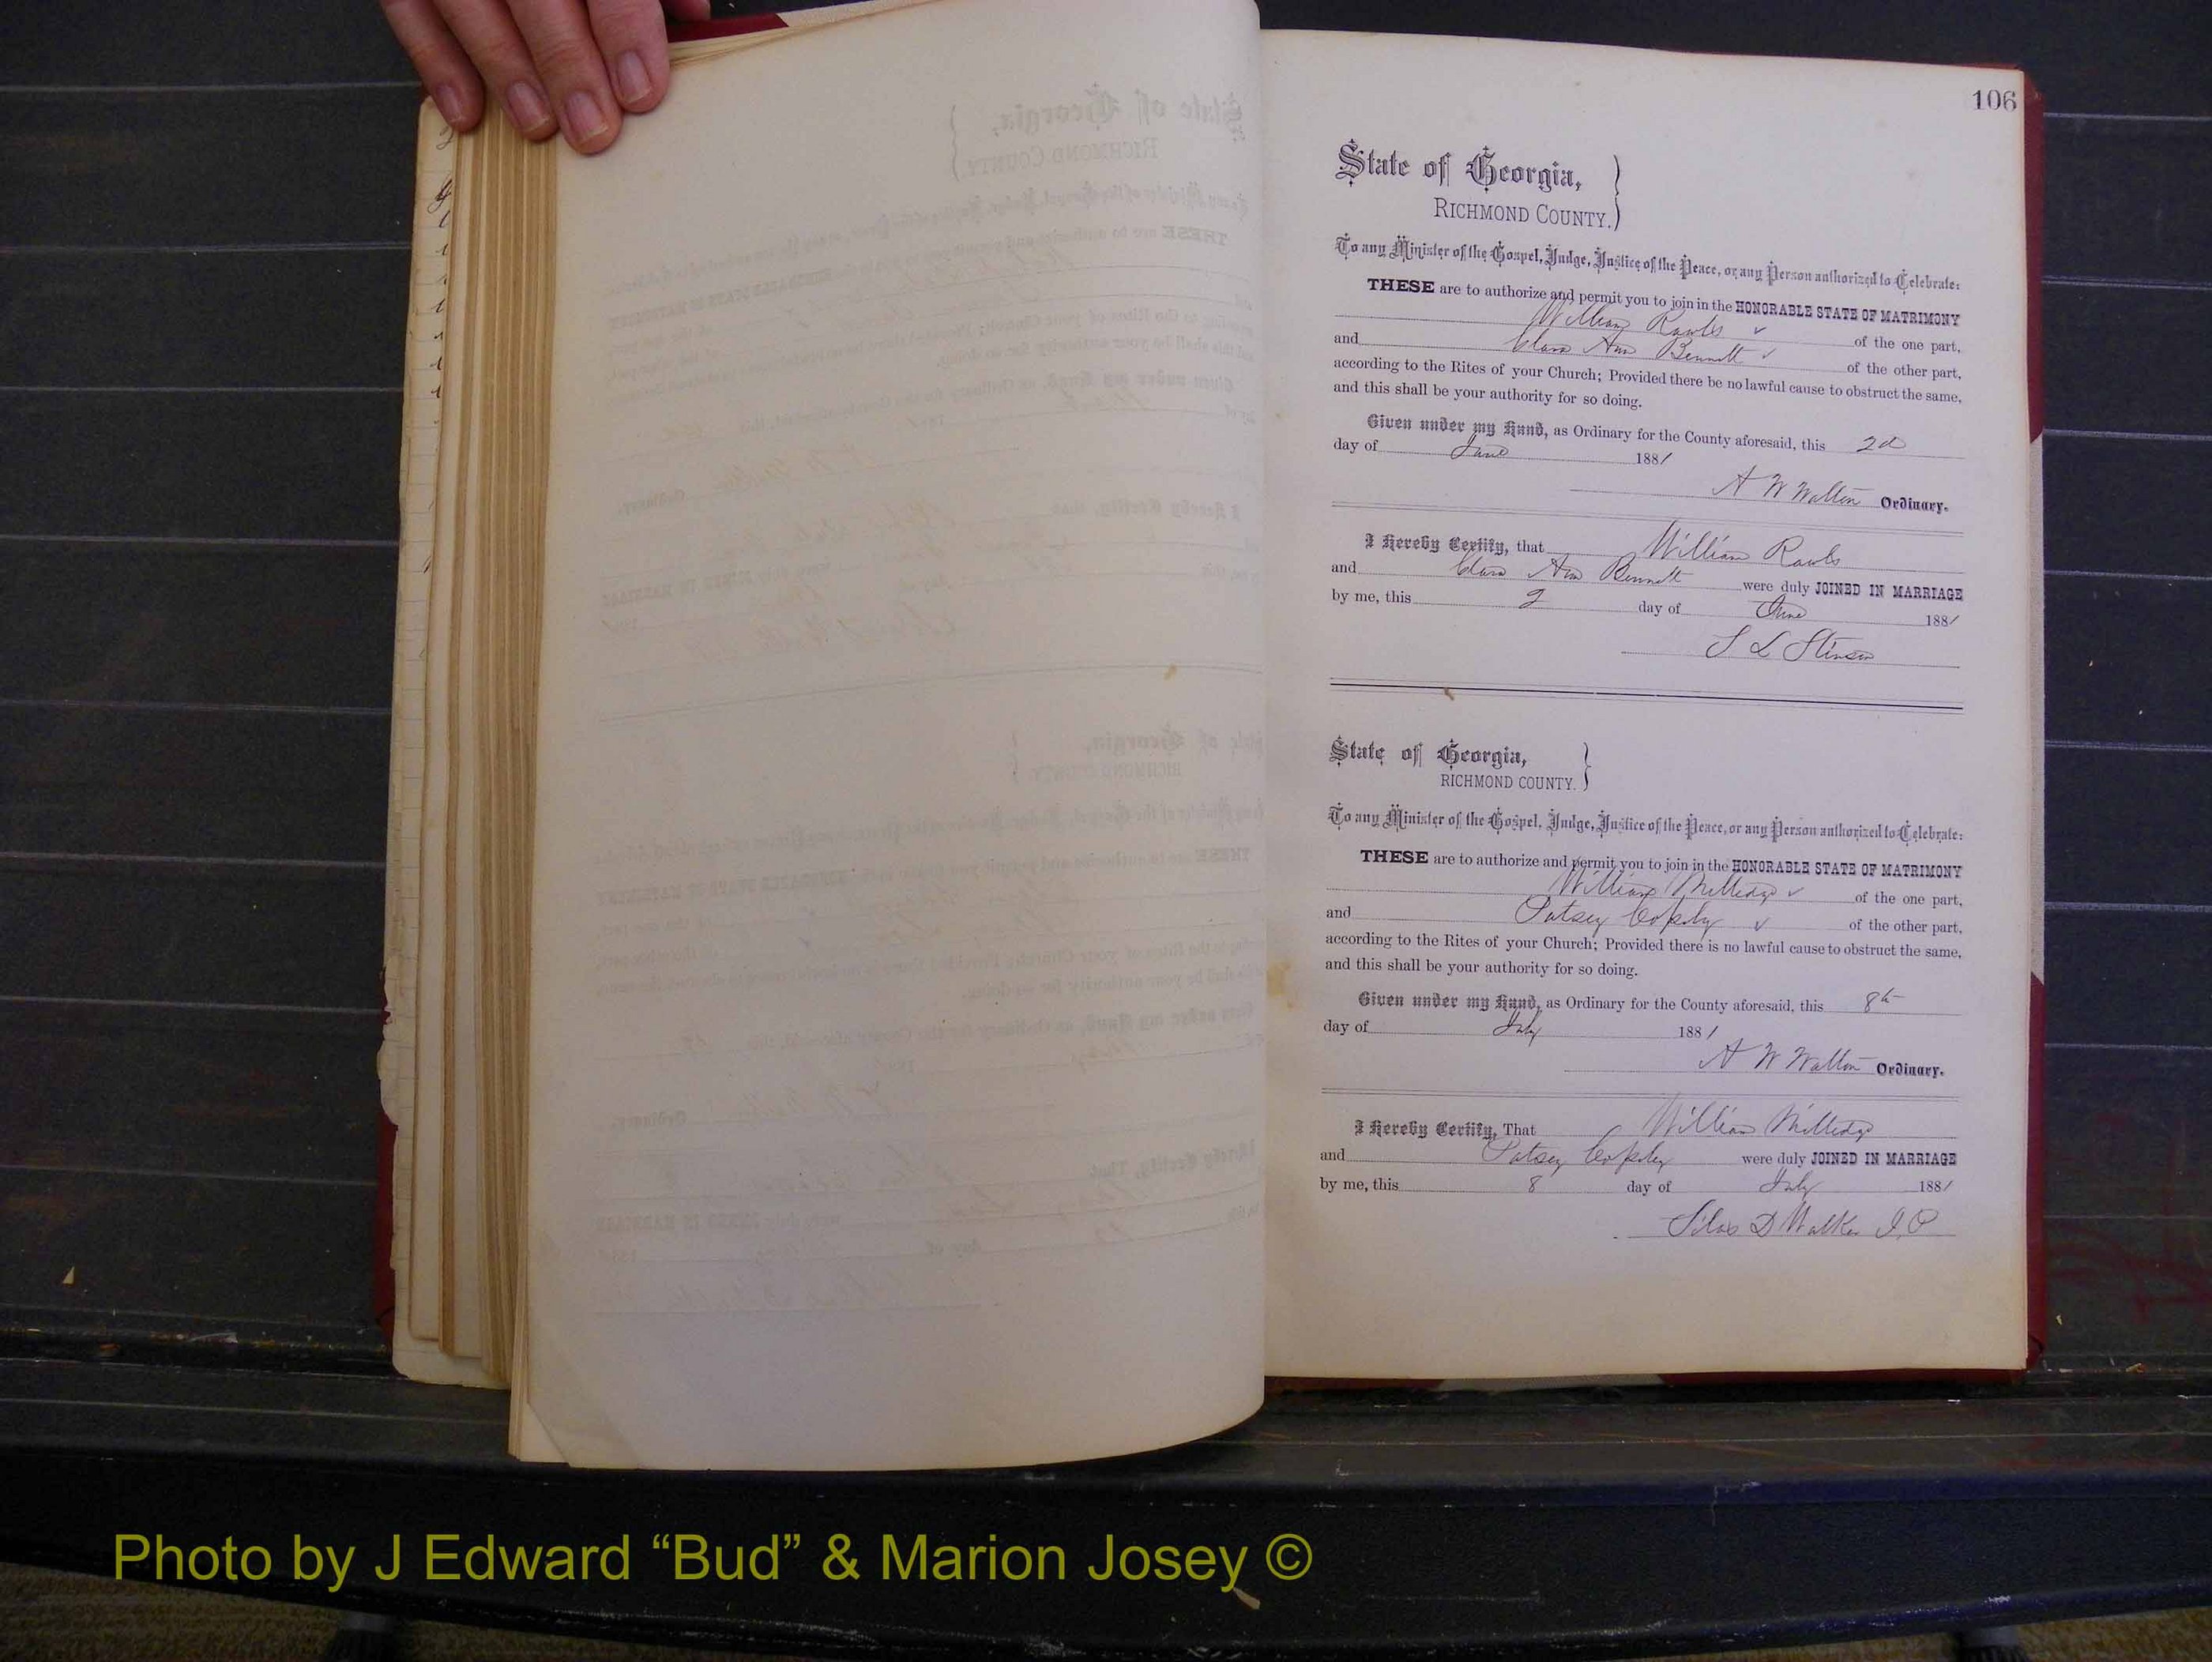 106
State of Georgia,
RICHMOND COUNTY.
To any Minister of the Gospel, Judge, Justice of the Peace, or any Person authorized to Celebrate:
THESE are to authorize and permit you to join in the HONORABLE STATE OF MATRIMONY
William Rawls of the one part,
and Clara Ann Bennett of the other part,
according to the Rites of your Church; Provided there be no lawful cause to obstruct the same,
and this shall be your authority for so doing.
Given under my Hand, as Ordinary for the County aforesaid, this 2d
day of June 1881
A W Walton Ordinary.
I Hereby Certify, that William Rawls
and Clara Ann Bennett were duly JOINED IN MARRIAGE
by me, this 2 day of June 1881
S L Stinson
State of Georgia,
RICHMOND COUNTY.
To any Minister of the Gospel, Judge, Justice of the Peace, or any Person authorized to Celebrate:
THESE are to authorize and permit you to join in the HONORABLE STATE OF MATRIMONY
William Milledge of the one part,
and Patsey of the other part,
according to the Rites of your Church; Provided there is no lawful cause to obstruct the same,
and this shall be your authority for so doing.
Given under my Hand, as Ordinary for the County aforesaid, this 8th
day of July 1881
A W Walton Ordinary.
I Hereby Certify, That William Milledge
and Patsey were duly JOINED IN MARRIAGE
by me, this 8 day of July 1881
Silas D Walker J.P
Photo by J Edward “Bud” & Marion Josey ©